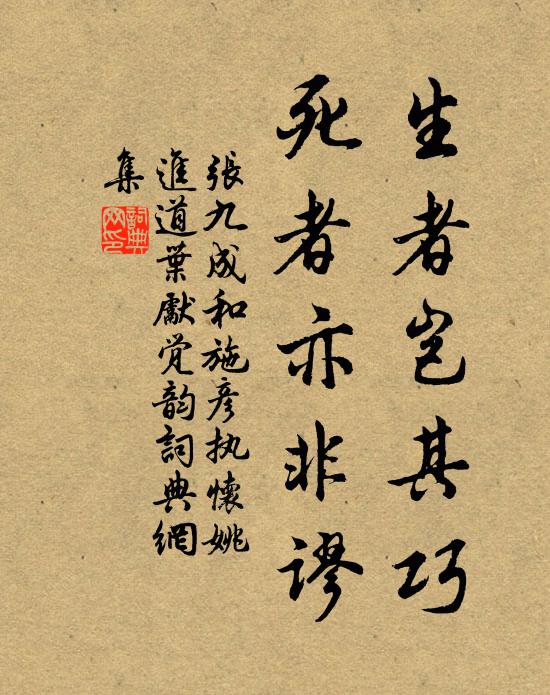 生者岂其巧
死者亦非谬
張九成和施彦执懷姚
進道葉處觉韵詞典網
集
詞典网印